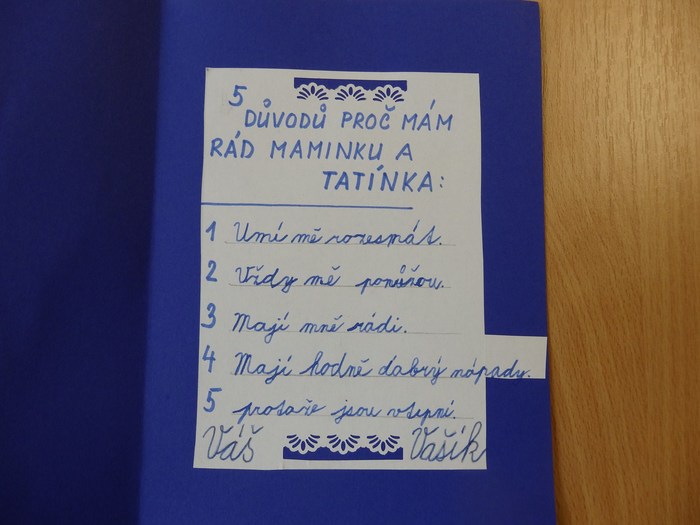 5
DŮVODŮ PROČ MÁM
RÁD MAMINKU A
TATÍNKA:
1 Umí mě rozesmát.
2 Vždy mě
3 Mají mně rádi.
4 Mají hodně dobrý nápady.
5 protože jsou vtipní.
Váš Vašík